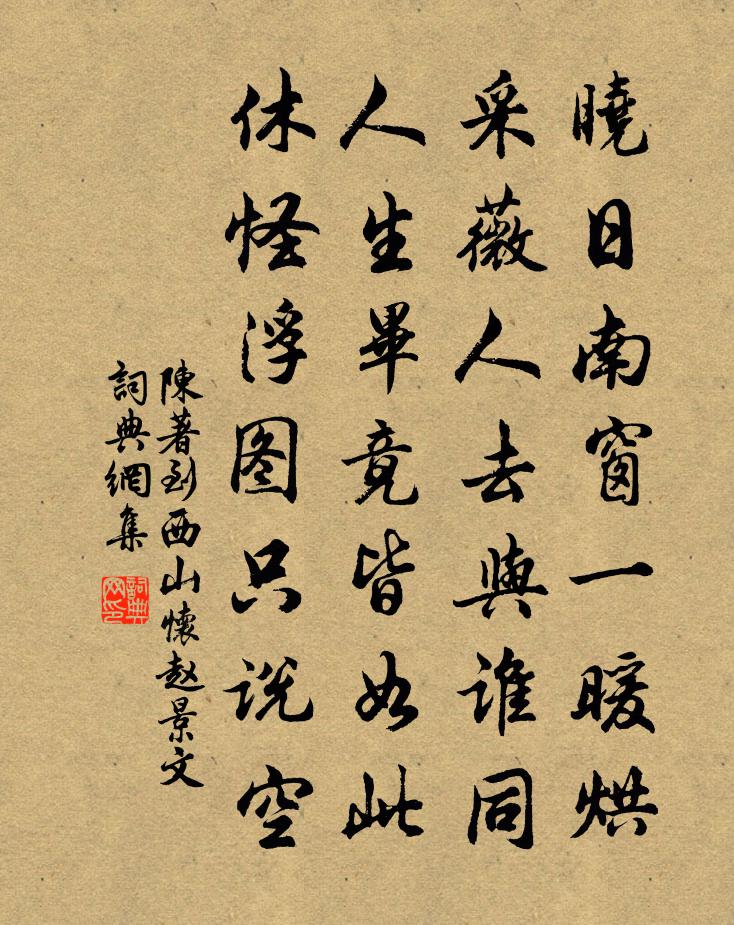 曉日南窗一暖烘
采薇人去與誰同
人生畢竟皆如此
休怪浮图只说空
陳著到西山懷赵景文
詞典網集
詞典网印